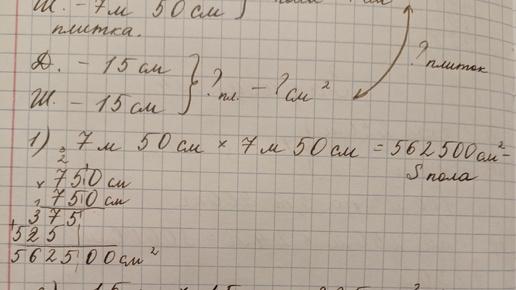 Ш. - 7 м 50 см
плитка.
Д. - 15 см
Ш. - 15 см } ?пл. - ? см²
? плиток
1) 7 м 50 см × 7 м 50 см = 562500 см² -
S пола
2
× 750 см
750 см
375
+ 525
562500 см²